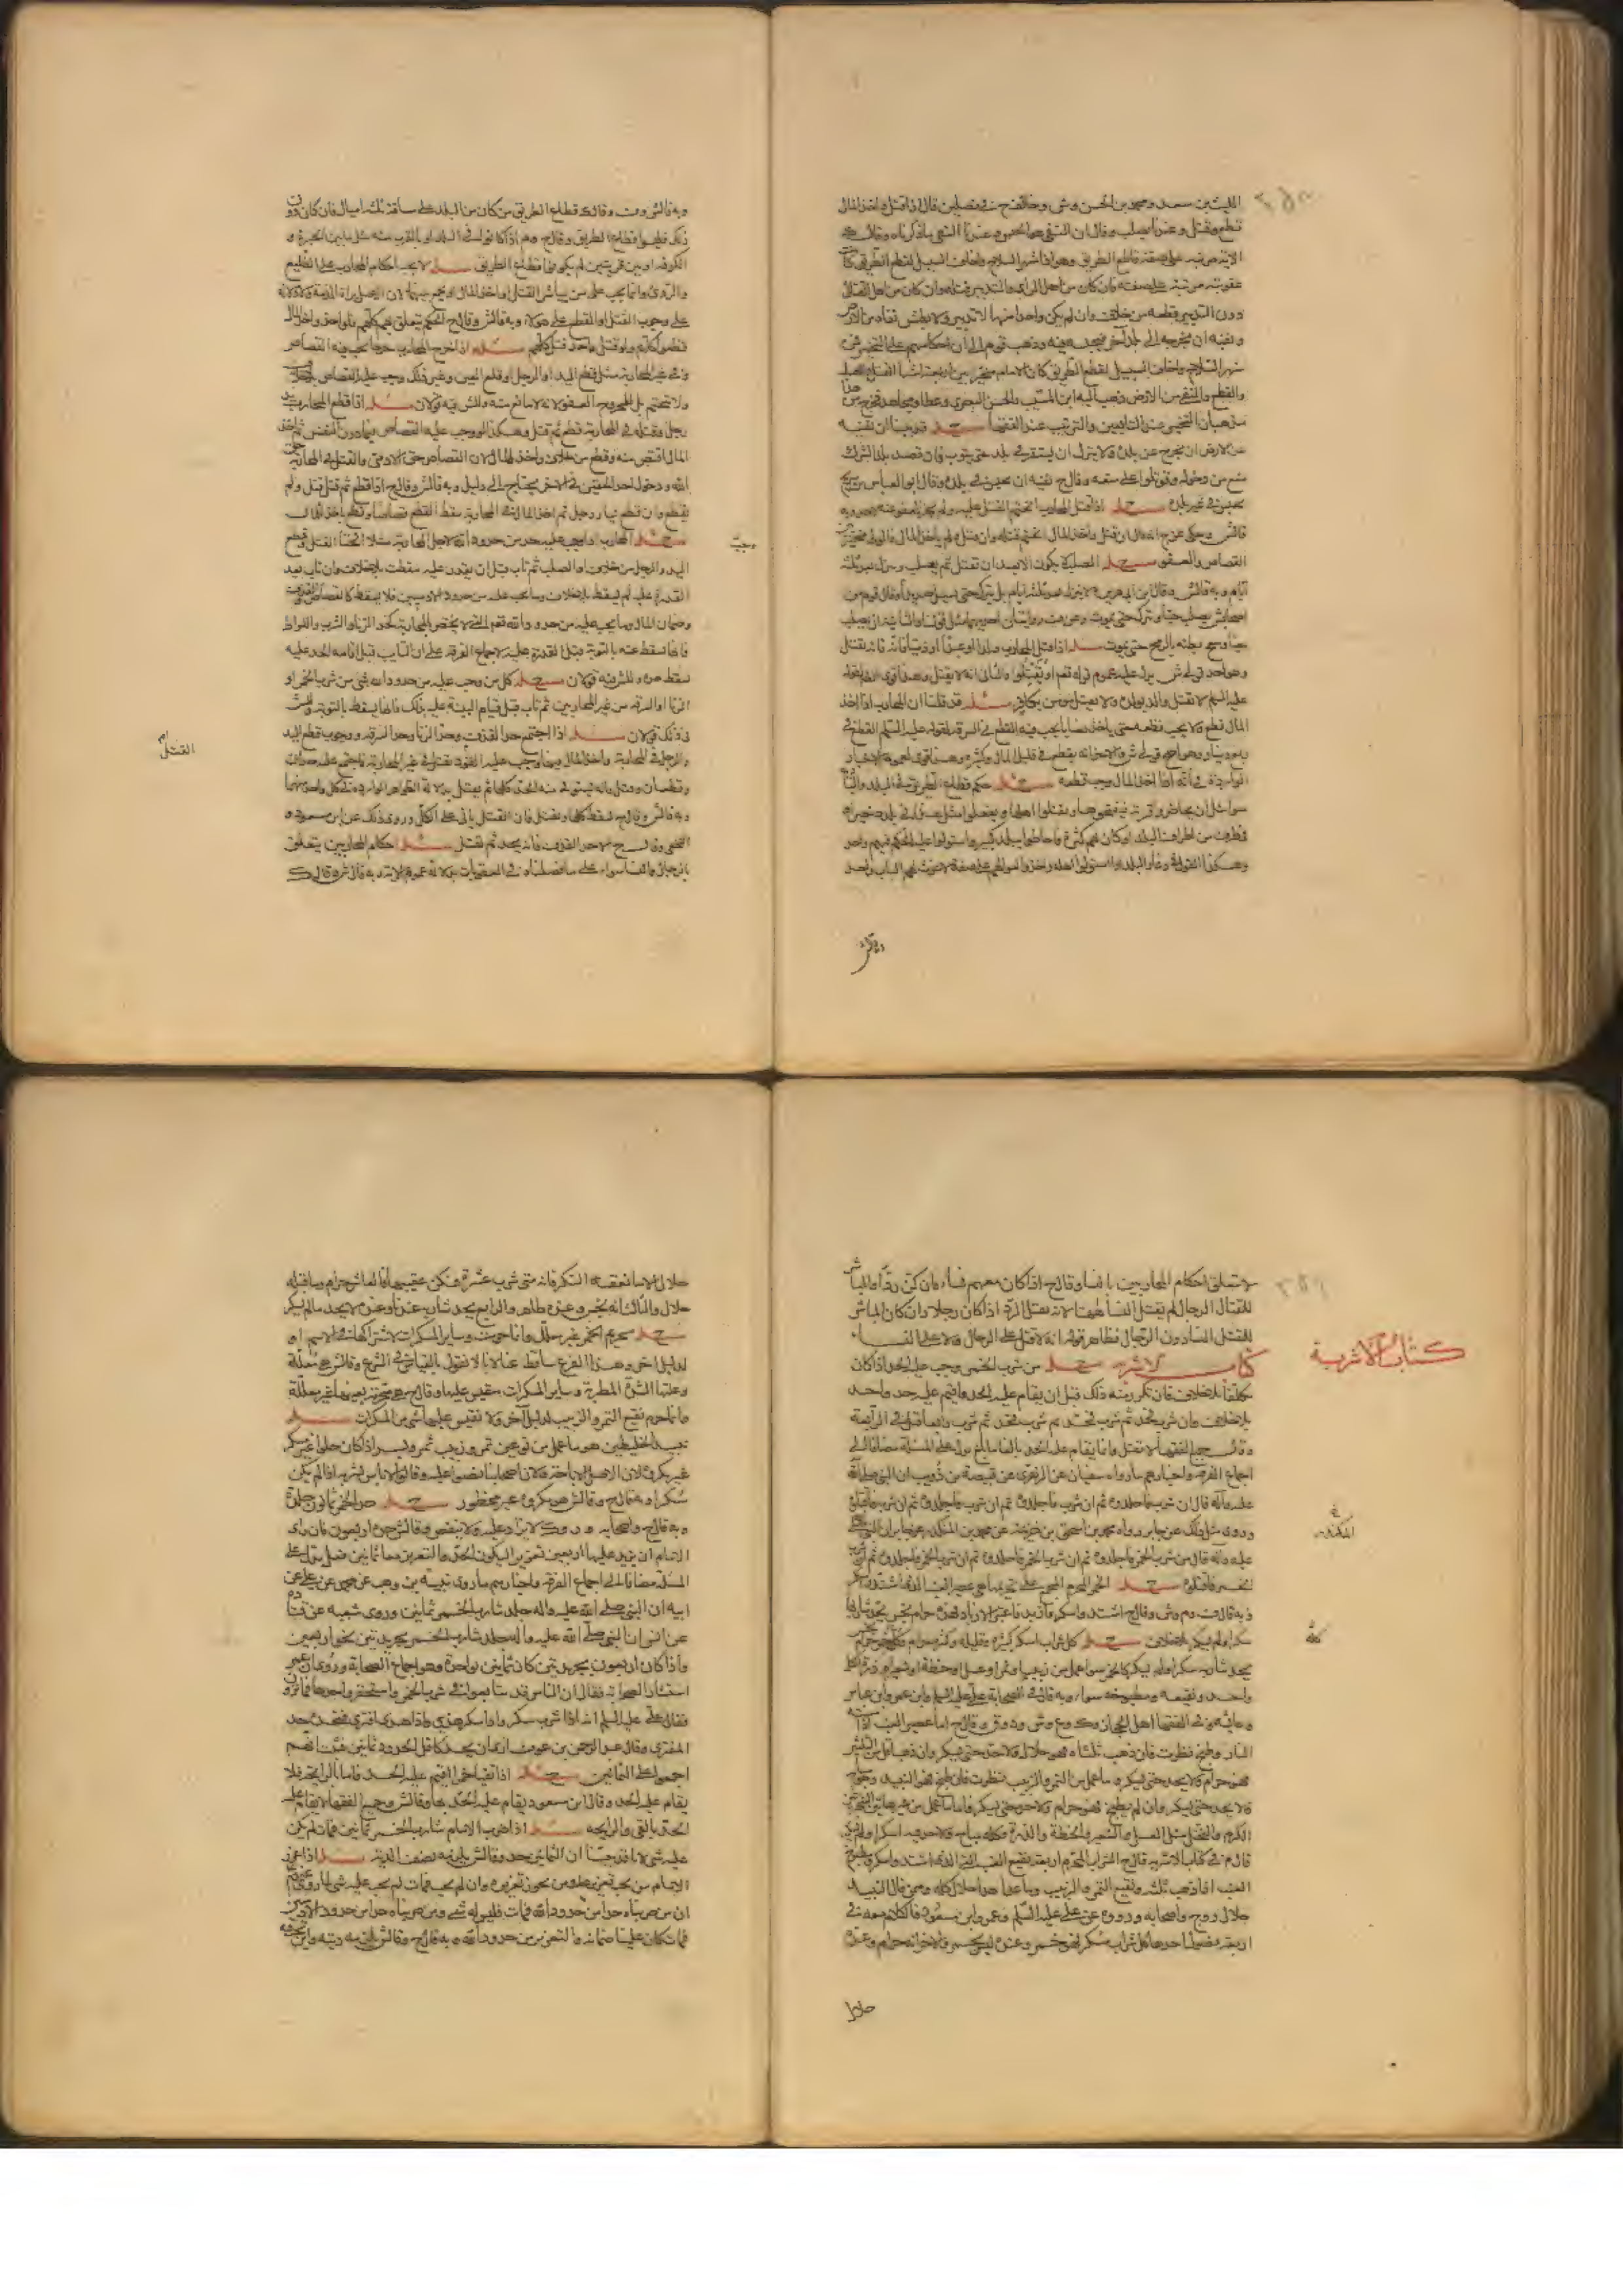 الليث بن سعد ومحمد بن الحسن وش وخالفه ح في فصلين قال اذا قتل واخذ المال
قطع وقتل وعندنا يصلب وقال ان النفي هو الحبس وعندنا النفي ما ذكرناه وقال ك
الآية مرتبة على صفة قاطع الطريق وهو اذا شهر السلاح واخاف السبيل لقطع الطريق كانت
عقوبته مرتبة على صفته فان كان من اهل الراى والتدبير قتله وان كان من اهل القتال
دون التدبير قطعه من خلاف وان لم يكن واحدا منهما لا تدبير ولا بطش نفاه من الارض
ونفيه ان يخرجه الى بلد آخر فيحبسه فيه وذهب قوم الى ان احكامهم على التخيير فمن
شهر السلاح واخاف السبيل لقطع الطريق كان الامام مخيرا بين اربعة اشيا القتل والصلب
والقطع والنفي من الارض ذهب اليه ابن المسيب والحسن البصري وعطا ومجاهد فخرج من هذا
مذهبان التخيير عند التابعين والترتيب عند الفقها مسئلة قد بينا ان نفيه
عن الارض ان يخرج عن بلده ولا يترك ان يستقر في بلد حتى يتوب فان قصد بلد الشرك
منع من دخوله وقوتلوا على منعه وقال ح نفيه ان يحبس في بلده وقال ابو العباس بن سريج
يحبس في غير بلده مسئلة اذا قتل المحارب انحتم القتل عليه ولم يجز العفو عنه وبه
قال ش وحكى عن ح انه قال ان قتل واخذ المال انحتم قتله وان قتل ولم ياخذ المال فالولى مخير بين
القصاص والعفو مسئلة الصلب لا يكون الا بعد ان يقتل ثم يصلب وينزل بعد ثلثة
ايام وبه قال ش وقال ابن ابي هريرة لا ينزل بعد ثلثة ايام بل يترك حتى يسيل صديدا وقال قوم من
اصحاب ش يصلب حيا ويترك حتى يموت وعن ف روايتان احديهما مثل قولنا والثانية ان يصلب
حيا ويبعج بطنه بالرمح حتى يموت مسئلة اذا قتل المحارب ولدا او عبدا او ذميا فانه يقتل
وهو احد قولى ش يدل عليه عموم قوله تعم ان يقتلوا والثاني انه لا يقتل وهذا قوى لقوله
عليه السلم لا يقتل والد بولده ولا يقتل مؤمن بكافر مسئلة قد قلنا ان المحارب اذا اخذ
المال قطع ولا يجب قطعه حتى ياخذ نصابا يجب فيه القطع في السرقة لقوله عليه السلم القطع في
ربع دينار وهو احد قولى ش والآخر انه يقطع في قليل المال وكثيره وهو قوى لعموم الاخبار
الواردة في انه اذا اخذ المال وجب قطعه مسئلة حكم قطاع الطريق في البلد والبادية
سوا مثل ان يحاصروا قرية فيفتحوها ويقتلوا اهلها ويفعلوا مثل هذا في بلد صغير او
في طرف من اطراف البلد او كان بهم كثرة فاحاطوا ببلد كبير واستولوا عليه الحكم فيهم واحد
وهكذا القول في دعار البلد اذا استولوا على اهله واخذوا مالهم على صفة لا غوث لهم الباب واحد
وبه قال ش
وبه قال ش وف وقال ك قطاع الطريق من كان من البلد على مسافة ثلثة اميال فان كان دون
ذلك فليسوا قطاع الطريق وقال ح وم اذا كانوا في البلد او بالقرب منه مثل ما بين الحيرة و
الكوفة او بين قريتين لم يكونوا قطاع الطريق مسئلة لا يجب احكام المحارب على الطليع
والردء وانما يجب على من يباشر القتل او اخذ المال او يجمع بينهما لان الاصل براة الذمة ولا دلالة
على وجوب القتل او القطع على هؤلا وبه قال ش وقال ح الحكم يتعلق بهم كلهم فلو اخذ واحد المال
قطعوا كلهم ولو قتل واحد قتل كلهم مسئلة اذا جرح المحارب جرحا يجب فيه القصاص
في غير المحاربة مثل قطع اليد او الرجل او قلع العين وغير ذلك وجب عليه القصاص بلا خلاف
ولا يتحتم بل للمجروح العفو لانه لا مانع منه وللش فيه قولان مسئلة اذا قطع المحارب يد
رجل وقتله في المحاربة قطع ثم قتل وهكذا لو وجب عليه القصاص فيما دون النفس ثم اخذ
المال اقتص منه وقطع من خلاف واخذ المال لان القصاص حق الآدمى والقتل في المحاربة حق
الله ودخول احد الحقين في الآخر يحتاج الى دليل وبه قال ش وقال ح اذا قطع ثم قتل قتل ولم
يقطع وان قطع يسار رجل ثم اخذ المال في المحاربة سقط القطع قصاصا وقطع باخذ المال
مسئلة المحارب اذا وجب عليه حد من حدود الله لاجل المحاربة مثلا انحتام القتل وقطع
اليد والرجل من خلاف او الصلب ثم تاب قبل ان يقدر عليه سقطت بلا خلاف وان تاب بعد
القدرة عليه لم يسقط بلا خلاف وما يجب عليه من حدود الآدميين فلا يسقط كالقصاص والقذف
وضمان المال وما يجب عليه من حدود الله تعم التى لا يختص المحاربة كحد الزنا والشرب واللواط
فانها تسقط عنه بالتوبة قبل القدرة عليه لاجماع الفرقة على ان التايب قبل اقامة الحد عليه
يسقط حده وللش فيه قولان مسئلة كل من وجب عليه من حدود الله شى من شرب الخمر او
الزنا او السرقة من غير المحاربين ثم تاب قبل قيام البينة عليه بذلك فانها يسقط بالتوبة وللش
في ذلك قولان مسئلة اذا اجتمع حد القذف وحد الزنا وحد السرقة ووجوب قطع اليد
والرجل في المحاربة واخذ المال فيها ووجب عليه القود بقتل في غير المحاربة فاجتمع عليه حدان
وقطعان وقتل فانه يستوفى منه الحدود كلها ثم يقتل بدلالة الظواهر الواردة في كل واحد منهما
وبه قال ش وقال ح يسقط كلها ويقتل فان القتل ياتى على الكل وروى ذلك عن ابن مسعود و
النخعى وقال ح الا حد القذف فانه يحد ثم يقتل مسئلة احكام المحاربين يتعلق
بالرجال والنسا سواء على ما فصلناه في العقوبات بدلالة عموم الآية وبه قال ش وقال ك
وجبت
القتل ام
لا يتعلق احكام المحاربين بالنسا وقال ح اذا كان معهم نساء فان كن ردءا والمباشر
للقتال الرجال لم يقتل النسا ههنا لانه يقتل الردء اذا كان رجلا وان كان المباشر
للقتل النسا دون الرجال فظاهر قوله انه لا قتل على الرجال ولا على النساء
كتاب الاشربة مسئلة من شرب الخمر وجب عليه الحد اذا كان
مكلفا بلا خلاف فان تكرر منه ذلك قبل ان يقام عليه الحد واقيم عليه حد واحد
بلا خلاف وان شرب فحد ثم شرب فحد ثم شرب فحد ثم شرب رابعا قتل في الرابعة
وقال جميع الفقها لا يقتل وانما يقام عليه الحد بالغا ما بلغ يدل على المسئلة مضافا الى
اجماع الفرقة واخبارهم ما رواه سفيان عن الزهرى عن قبيصة بن ذويب ان النبي صلى الله
عليه وآله قال ان شرب فاجلدوه ثم ان شرب فاجلدوه ثم ان شرب فاجلدوه ثم ان شرب فاقتلوه
وروى مثل ذلك عن جابر رواه محمد بن اسحق بن خزيمة عن محمد بن المنكدر عن جابر ان النبي صلى
عليه وآله قال من شرب الخمر فاجلدوه ثم ان شرب الخمر فاجلدوه ثم ان شرب الخمر فاجلدوه ثم ان شرب
الخمر فاقتلوه مسئلة الخمر المحرم المجمع على تحريمها هى عصير العنب الذى اشتد واسكر
وبه قال ف وم وش وقال ح اشتد واسكر وازبد فاعتبر الازباد فهذه حرام نجس يحد شاربها
سكر او لم يسكر بلا خلاف مسئلة كل شراب اسكر كثيره فقليله وكثيره حرام وكله خمر حرام نجس
يحد شاربه سكر او لم يسكر كالخمر سوا عمل من زبيب او تمر او عسل او حنطة او شعير او ذرة الكل
واحد ونقيعه ومطبوخه سوا وبه قال في الصحابة على عليه السلم وابن عمر وابن عباس
وعايشه وفي الفقها اهل الحجاز وك وع وش ود وق وقال ح اما عصير العنب اذا مسته
النار وطبخ نظرت فان ذهب ثلثاه فهو حلال ولا حد حتى يسكر وان ذهب اقل من الثلثين
فهو حرام ولا يحد حتى يسكر وما عمل من التمر والزبيب نظرت فان طبخ فهو النبيذ وهو مباح
ولا يحد حتى يسكر وان لم يطبخ فهو حرام ولا حد حتى يسكر فاما ما عمل من غير هاتين الشجرتين
الكرم والنخل مثل العسل والشعير والحنطة والذرة فكله مباح ولا حد فيه اسكر او لم يسكر
قال م في كتاب الاشربة قال ح الشراب المحرم اربعة نقيع العنب الذى اشتد واسكر ومطبوخ
العنب اذا ذهب ثلثه ونقيع التمر والزبيب وما عدا هذا حلال كله وممن قال النبيذ
حلال ر وح واصحابه ورووه عن على عليه السلم وعمر وابن مسعود فالكلام معه في
اربعة فصول احدها كل شراب مسكر فهو خمر وعنده ليس بخمر والآخر انه حرام وعنده
حلال
كتاب الاشربة
في
المكدر
كله
حلال الا ما يعقبه السكر فانه متى شرب عشرة فسكر عقيبها فالعاشر حرام وما قبله
حلال والثالث انه نجس وعنده طاهر والرابع يحد شاربه عندنا وعنده لا يحد ما لم يسكر
مسئلة تحريم الخمر غير معلل وانما حرمت وساير المسكرات لاشتراكها في الاسم او
لدليل آخر وهذا الفرع ساقط عنا لانا لا نقول بالقياس في الشرع وقال ش هى معللة
وعلتها الشدة المطربة وساير المسكرات مقيس عليها وقال ح هى محرمة بعينها غير معللة
وانما حرم نقيع التمر والزبيب لدليل آخر ولا نقيس عليها شى من المسكرات مسئلة
نبيذ الخليطين هو ما عمل من نوعين تمر وزبيب تمر وبسر اذا كان حلوا غير مسكر
غير مكروه لان الاصل الاباحة ولان اصحابنا نصوا عليه وقالوا لا باس بشربه اذا لم يكن
مسكرا وبه قال ح وقال ش هو مكروه غير محظور مسئلة حد الخمر ثمانون جلدة
وبه قال ح واصحابه ور وك لا يزاد عليه ولا ينقص وقال ش حده اربعون فان راى
الامام ان يزيد عليها اربعين تعزيرا ليكون الحد والتعزير معا ثمانين فعل يدل على
المسئلة مضافا الى اجماع الفرقة واخبارهم ما روى نبيه بن وهب عن محمد بن على عن
ابيه ان النبي صلى الله عليه وآله جلد شارب الخمر ثمانين وروى شعبه عن قتادة
عن انس ان النبي صلى الله عليه وآله جلد شارب الخمر بجريدتين نحو اربعين
واذا كان اربعون بجريدتين كان ثمانين بواحدة وهو اجماع الصحابة وروى ان عمر
استشار الصحابة فقال ان الناس قد تتابعوا في شرب الخمر واستحقروا حدها فما ترون
فقال على عليه السلم انه اذا شرب سكر واذا سكر هذى واذا هذى افترى فنحده حد
المفترى وقال عبد الرحمن بن عوف ارى ان يحد كاقل الحدود ثمانين فثبت انهم
اجمعوا على الثمانين مسئلة اذا تقيا خمرا اقيم عليه الحد فاما بالرايحة فلا
يقام عليه الحد وقال ابن مسعود يقام عليه الحد بها وقال ش وجميع الفقها لا يقام عليه
الحد بالقى والرايحة مسئلة اذا ضرب الامام شارب الخمر ثمانين فمات لم يكن
عليه شى لانا قد بينا ان الثمانين حد وقال ش يلزمه نصف الدية مسئلة اذا عزر
الامام من يجب تعزيره او من يجوز تعزيره وان لم يجب فمات لم يجب عليه شى لما روى عنهم
ان من ضربناه حدا من حدود الله فمات فليس له شى ومن ضربناه حدا من حدود الآدميين
فمات كان علينا ضمانه والتعزير من حدود الله وبه قال ح وقال ش يلزمه ديته واين تجب فيه